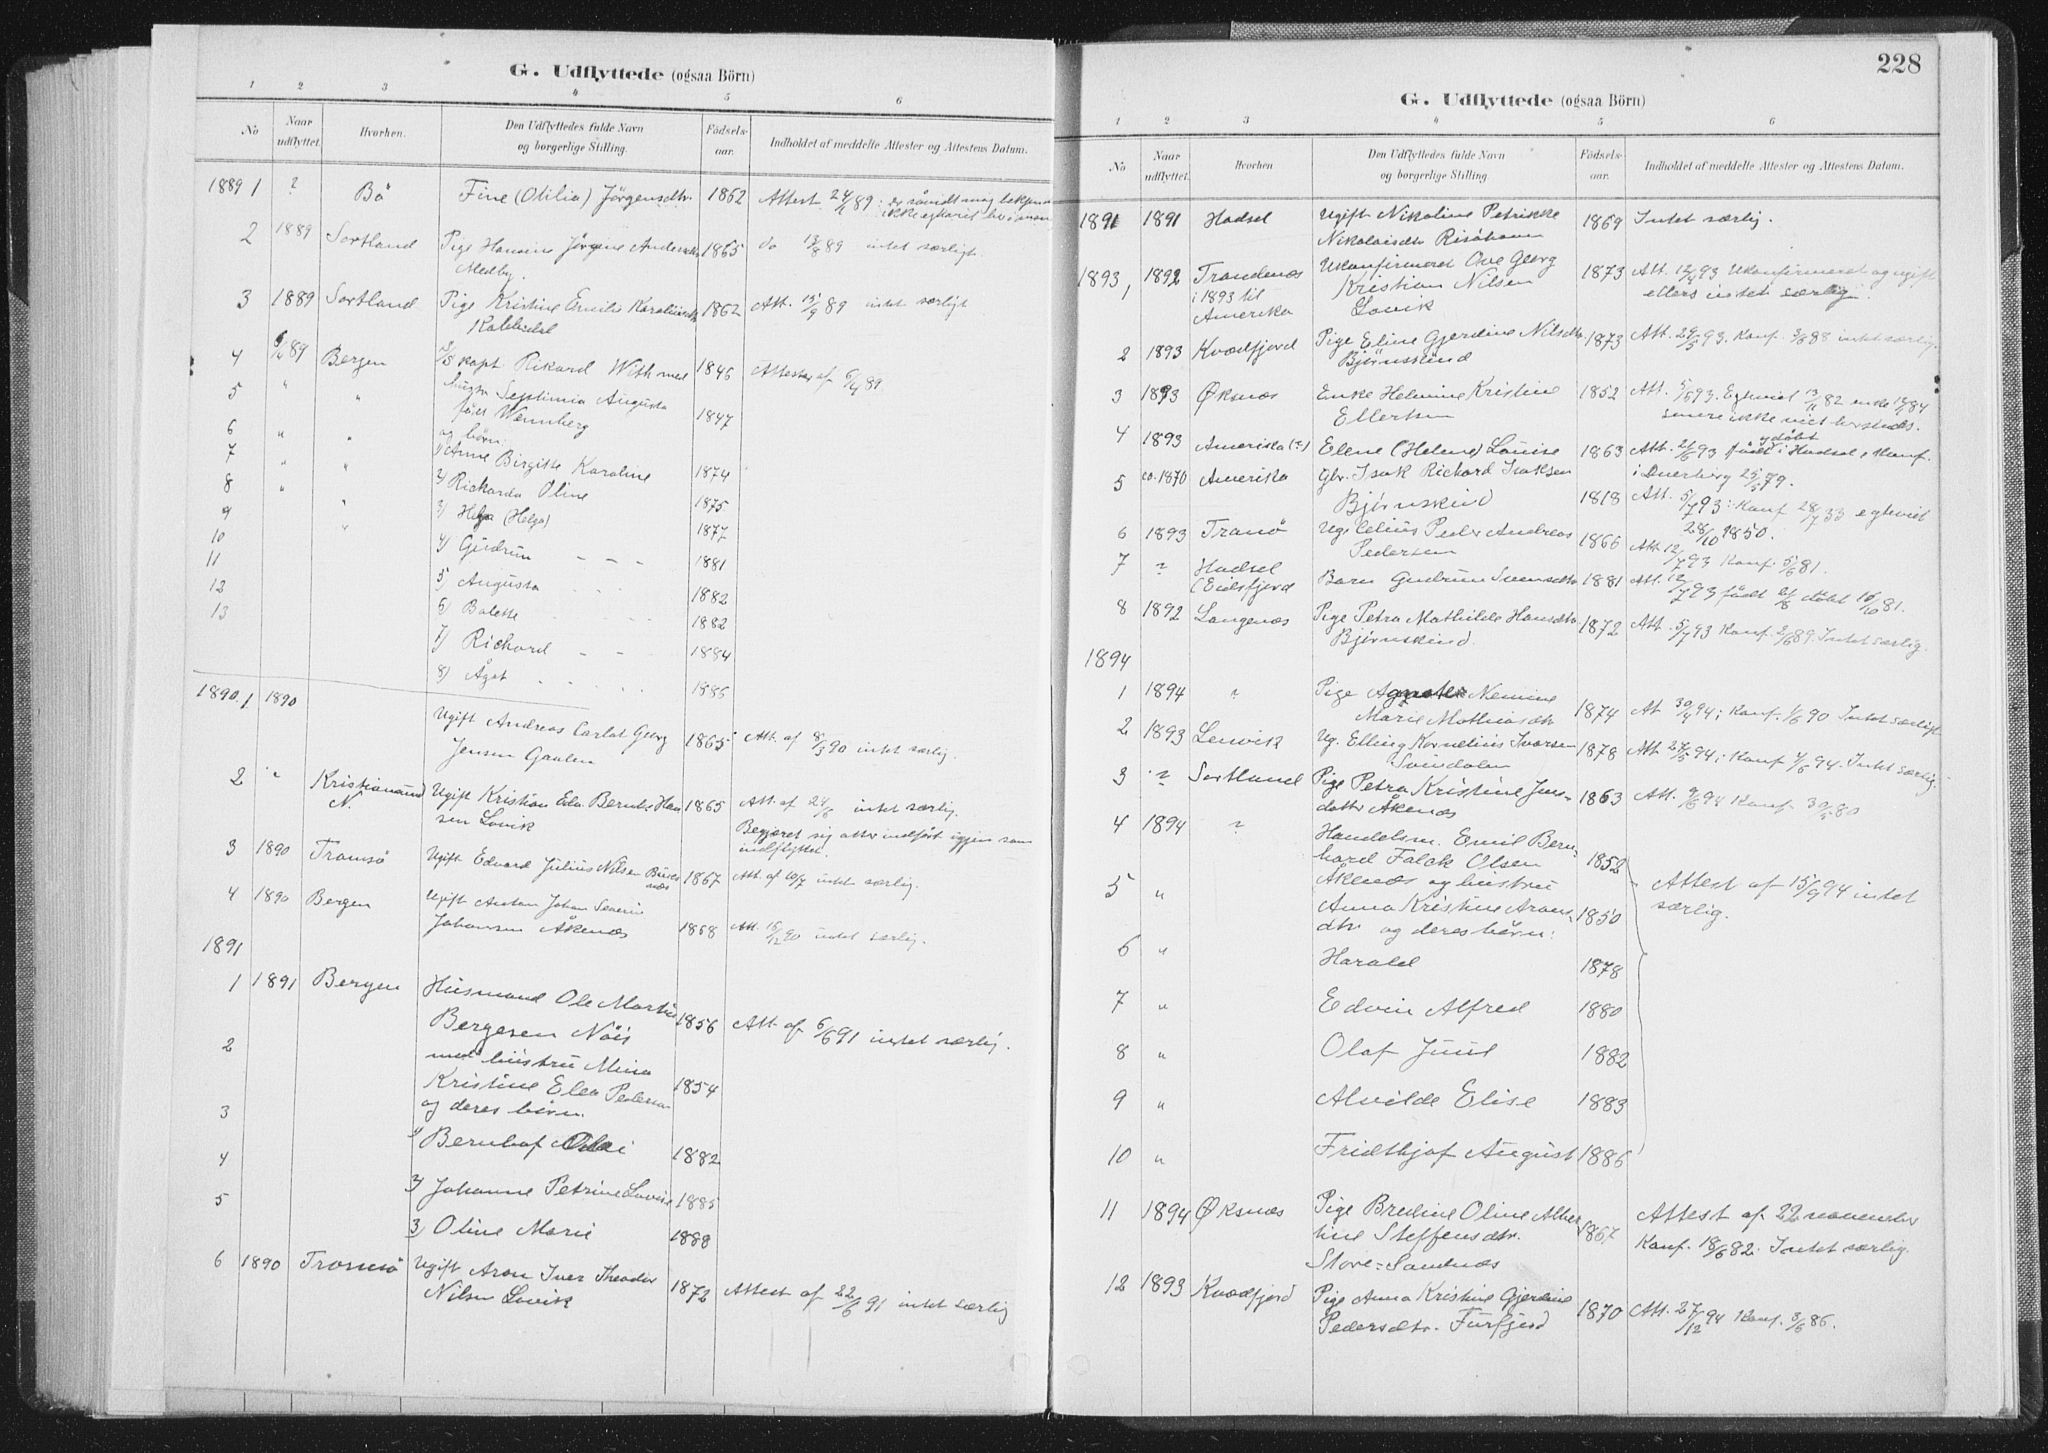 G. Udflyttede (ogsaa Börn)
1 2 3 4 5 6
No Naar udflyttet. Hvorhen. Den Udflyttedes fulde Navn og borgerlige Stilling. Födsels-aar. Indholdet af meddelte Attester og Attestens Datum.
1889 1 ? Bö Fine (Otilia) Jörgensdtr. 1862 Attest 89: er såvidt mig
2 1889 Sortland Pige Hansine Jörgine Andersdtr 1865 do 13/8 89 intet særligt.
Medby.
3 1889 Sortland Pige Kristine Emilie 1862 Att. 89 intet særligt
4 6/4 89 Bergen D/S kapt. Rikard With med 1846 Attester af 6/4 89
5 " " Septimia Augusta
født Wennberg 1847
6 " " og börn.
7 " " 1) Anne Birgitte Karoline 1874
8 " " 2) Rickarda Oline 1875
9 " 3) Helga (Helga) 1877
10 4) Gudrun 1881
11 5) Augusta 1882
12 6) Bolette 1882
13 7) Richard 1884
8) Ågot 1885
1890. 1 1890 Ugift Andreas Carlot Georg 1865 Att. af 8/3 90 intet særlig.
Jensen
2 " Kristiansund N. Ugift Kristian Edv. Bernt Han 1865 Att. af intet særlig.
sen Lovik Begjæret sig atter indført igjen som
indflyttet.
3 1890 Tromsö Ugift Edvard Julius Nilsen 1867 Att. af 10/7 intet særlig.
4 1890 Bergen Ugift Anton Johan Severin
Johansen Åkenæs 1868 Att. 16/12 90 intet særlig.
1891
1 1891 Bergen Husmand Ole Martin
Bergesen Nöis 1856 Att. af 6/6 91 intet særlig.
2 med hustru Mina
Kristine Elea Pedersen 1854
3 og deres börn.
1) Bernhof 1882
4
5 2) Johanne Petrine Lovise 1885
3) Oline Marie 1888
6 1890 Tromsö Ugift Aron Iver Theodor
Nilsen Lovik 1872 Attest af 22/6 91 intet særlig
228
G. Udflyttede (ogsaa Börn)
1 2 3 4 5 6
No Naar udflyttet. Hvorhen Den Udflyttedes fulde Navn og borgerlige Stilling. Födsels-aar. Indholdet af meddelte Attester og Attestens Datum.
1891 1891 Hadsel Ugift Nikoline Petrikke 1869 Intet særlig.
Nikolaisdtr Risöhavn
1893, 1 1892 Trondenæs Ukonfirmeret Ove Georg 1873 Att. 93 Ukonfirmeret og ugift
i 1893 til Kristian Nilsen ellers intet særlig.
Amerika Lovik
2 1893 Kvædfjord Pige Eline Gjerdine Nilsdtr 1873 Att. 29/5 93. Konf. 3/6 88 intet særlig.
Bjørnskind
3 1893 Øksnæs Enke Helmine Kristine 1852 Att. 5/5 93. Egteviet 82 enke 84
Ellertsen senere ikke viet hersteds.
4 1893 Amerika (?) Elene (Helene) Louise 1863 Att. 21/6 93 født i Hadsel, Konf.
5 ca. 1870 Amerika Gbr. Isak Richard Isaksen i Dverberg 25/5 79.
Bjørnskind 1818 Att. 5/7 93: Konf 28/7 33 egteviet
28/10 1850.
6 1893 Tranö Ug. Celius Peder Andreas 1866
Pedersen Att 12/7 93 Konf. 5/6 81.
7 ? Hadsel
(Eidsfjord Barn Gudrun Svensdtr 1881 Att. 12/7 93 født 21/8 døbt 16/10 81.
8 1892 Langenæs Pige Petra Mathilde Hansdtr 1872 Att. 5/7 93 Konf. 2/6 89. Intet særlig.
Bjørnskind.
1894
1 1894 ? Pige Nemine
Marie Mathiasdtr 1874 At 30/4 94; Konf. 1/6 90 Intet særligt.
2 1893 Lenvik Ug. Elling Kornelius Ivarsen 1878 Att 27/5 94; Konf 94. Intet særlig.
Svindalen
3 ? Sortland Pige Petra Kristine Jens- 1863 Att. 9/6 94 Konf. 30/5 80
datter Åkenæs
4 1894 ? Handelsm. Emil Bern-
hard Falck Olsen 1852
5 " Åkenæs og hustru Attest af 15/9 94 intet
Anna Kristine Arons- 1850 særlig.
dtr. og deres börn:
6 " Harald 1878
7 " Edvin Alfred 1880
8 " Olaf Juul 1882
9 " Alvilde Elise 1883
10 " Fridthjof August 1886
11 1894 Øksnæs Pige Bredine Oline Alber Attest af 22 november
tine Steffensdtr. 1867 Konf. 18/6 82. Intet særlig.
Store=Sandnæs
12 1893 Kvædfjord Pige Anna Kristine Gjerdine
Pedersdtr. Forfjord 1870 Att. 27/12 94 Konf. 3/6 86.